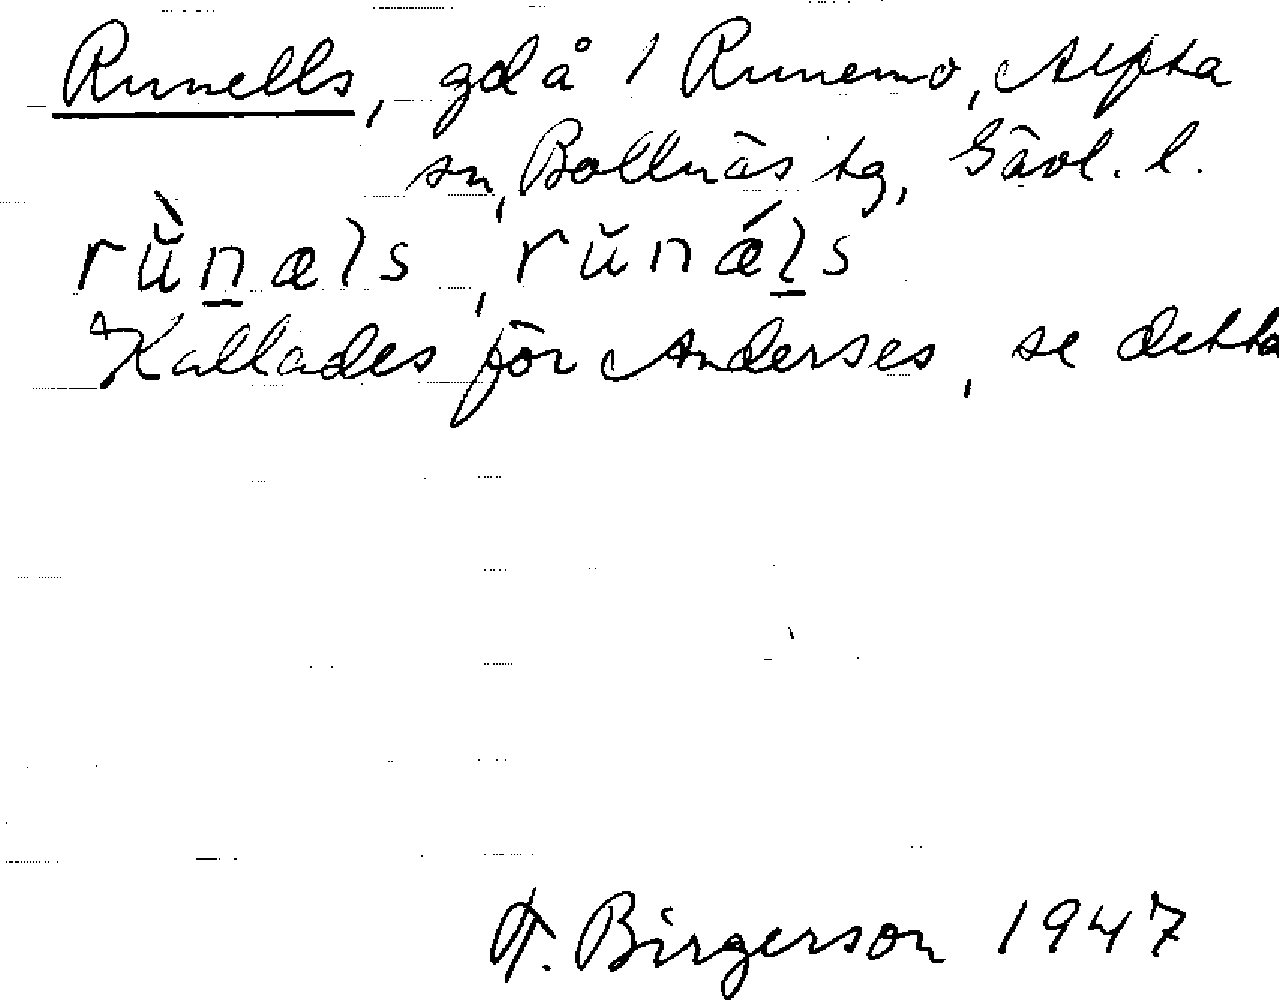 Runells, gd å 1 Runemo, Alfta
sn, Bollnäs tg, Gävl. l.
rùn̲æls, runǽl̲s
Kallades för Anderses, se detta
T. Birgerson 1947